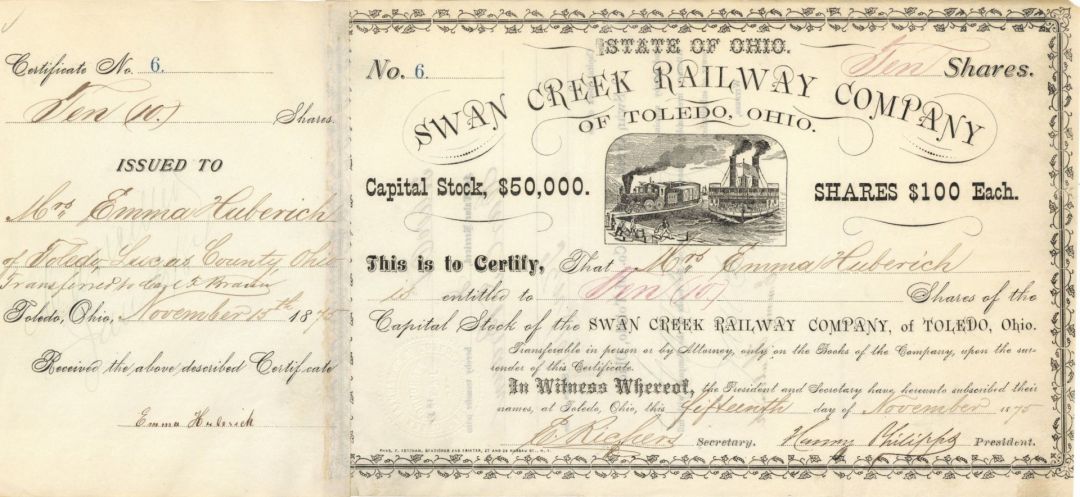 Certificate No. 6.
Ten (10.) Shares.
ISSUED TO
Mrs Emma Huberich
of Toledo Lucas County, Ohio
Transferred to
Toledo, Ohio, November 15th 1875
Received the above described Certificate
Emma Huberich
STATE OF OHIO.
No. 6.
Ten Shares.
SWAN CREEK RAILWAY COMPANY
OF TOLEDO, OHIO.
Capital Stock, $50,000.
SHARES $100 Each.
This is to Certify, That Mrs Emma Huberich
is entitled to Ten (10) Shares of the
Capital Stock of the SWAN CREEK RAILWAY COMPANY, of TOLEDO, Ohio.
Transferable in person or by Attorney, only on the Books of the Company, upon the sur-
render of this Certificate.
In Witness Whereof, the President and Secretary have hereunto subscribed their
names, at Toledo, Ohio, this fifteenth day of November 1875
Secretary. Philipps President.
STATIONER AND PRINTER, N. Y.